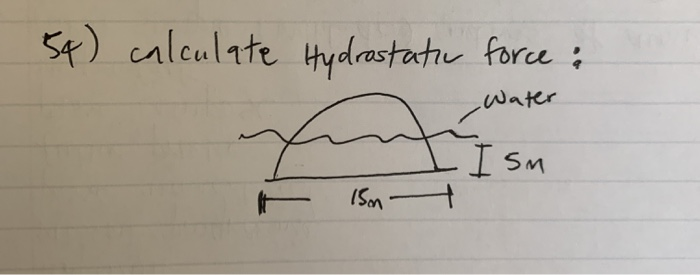 54) calculate Hydrostatic force :
water
5m
15m